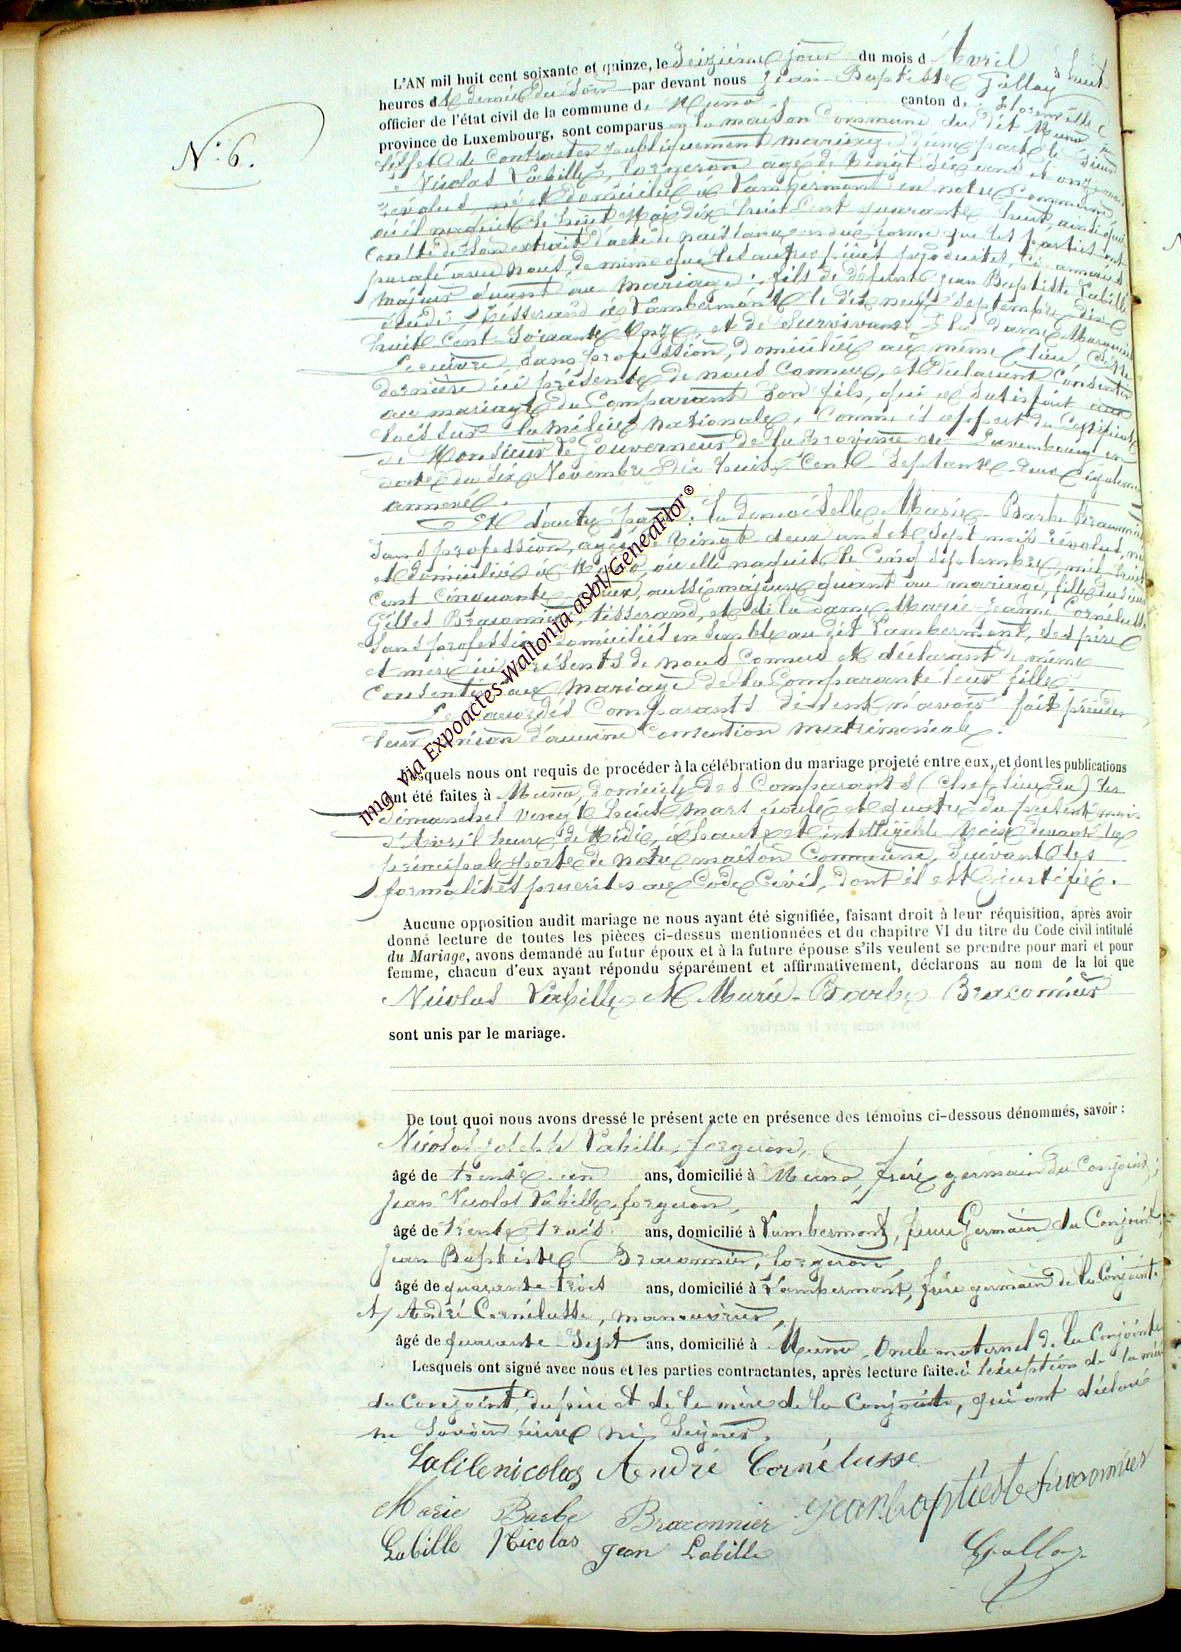 N° 6.
L'AN mil huit cent soixante et quinze, le seizième jour du mois d'Avril à huit
heures et demie du soir par devant nous Jean-Baptiste Gallay
officier de l'état civil de la commune de Muno canton de Florenville
province de Luxembourg, sont comparus en la maison Commune du dit Muno,
l'effet de contracter publiquement mariage d'une part le sieur
Nicolas Labille, forgeron agé de vingt six ans et onze mois
révolus, né et domicilié à Lambermont en notre Commune
où il naquit le huit Mai dix huit cent quarante huit, ainsi qu'il
conste de son extrait d'acte de naissance en due forme que les parties ont
parafé avec nous, de même que les autres pièces produites, ci annexées
majeur quant au mariage; fils de défunt Jean Baptiste Labille
décédé tisserand à Lambermont le dix neuf septembre dix
huit cent soixante onze, et de survivante la dame Marguerite
sans profession, domiciliée au même lieu, cette
dernière ici présente de nous connue, et déclarant consentir
au mariage du Comparant son fils, qui a satisfait aux
lois sur la milice nationale, comme il appert du certificat
de Monsieur le Gouverneur de la Province de Luxembourg en
date du six Novembre dix huit Cent septante-deux également
annexé.
Et d'autre part: la demoiselle Marie-Barbe Braconnier
sans profession, agée de vingt deux ans et sept mois révolus, née
et domiciliée à Muno, où elle naquit le cinq septembre, mil huit
cent cinquante deux, aussi majeure quant au mariage, fille du sieur
Gilles Braconnier, tisserand, et de la dame Marie-Jeanne Cornélusse
sans profession domiciliés ensemble au dit Lambermont, ses père
et mère ici présents de nous connus et déclarant de même
consentir au mariage de la Comparante leur fille.
Les comparants disent n'avoir fait précéder
leur union d'aucune convention matrimoniale.
Lesquels nous ont requis de procéder à la célébration du mariage projeté entre eux, et dont les publications
ont été faites à Muno, domicile des Comparants (chef lieu) les
dimanches vingt huit mars écoulé et quatre du présent mois
d'Avril heure de Midi, à haute et intelligible voix devant la
principale porte de notre maison Commune, suivant les
formalités prescrites au Code Civil, dont il est justifié.
Aucune opposition audit mariage ne nous ayant été signifiée, faisant droit à leur réquisition, après avoir
donné lecture de toutes les pièces ci-dessus mentionnées et du chapitre VI du titre du Code civil intitulé
du Mariage, avons demandé au futur époux et à la future épouse s'ils veulent se prendre pour mari et pour
femme, chacun d'eux ayant répondu séparément et affirmativement, déclarons au nom de la loi que
Nicolas Labille et Marie-Barbe Braconnier
sont unis par le mariage.
De tout quoi nous avons dressé le présent acte en présence des témoins ci-dessous dénommés, savoir :
Nicolas Labille, forgeron,
âgé de trente un ans, domicilié à Muno, frère germain du Conjoint;
Jean Nicolas Labille, forgeron,
âgé de trente trois ans, domicilié à Lambermont, frère Germain du Conjoint;
Jean Baptiste Braconnier, forgeron,
âgé de quarante trois ans, domicilié à Lambermont, frère germain de la Conjointe
Et André Cornélusse, manouvrier,
âgé de quarante sept ans, domicilié à Muno, Oncle maternel de la Conjointe
Lesquels ont signé avec nous et les parties contractantes, après lecture faite. à l'exception de la mère
du Conjoint, du père et de la mère de la Conjointe, qui ont déclaré
ne savoir écrire ni signer.
Labile nicolas André Cornélusse
Marie Barbe Braconnier jean baptiste braconnier
Labille Nicolas Jean Labille Gallay
img via Expoactes-Wallonia asbl/GeneaFlor®